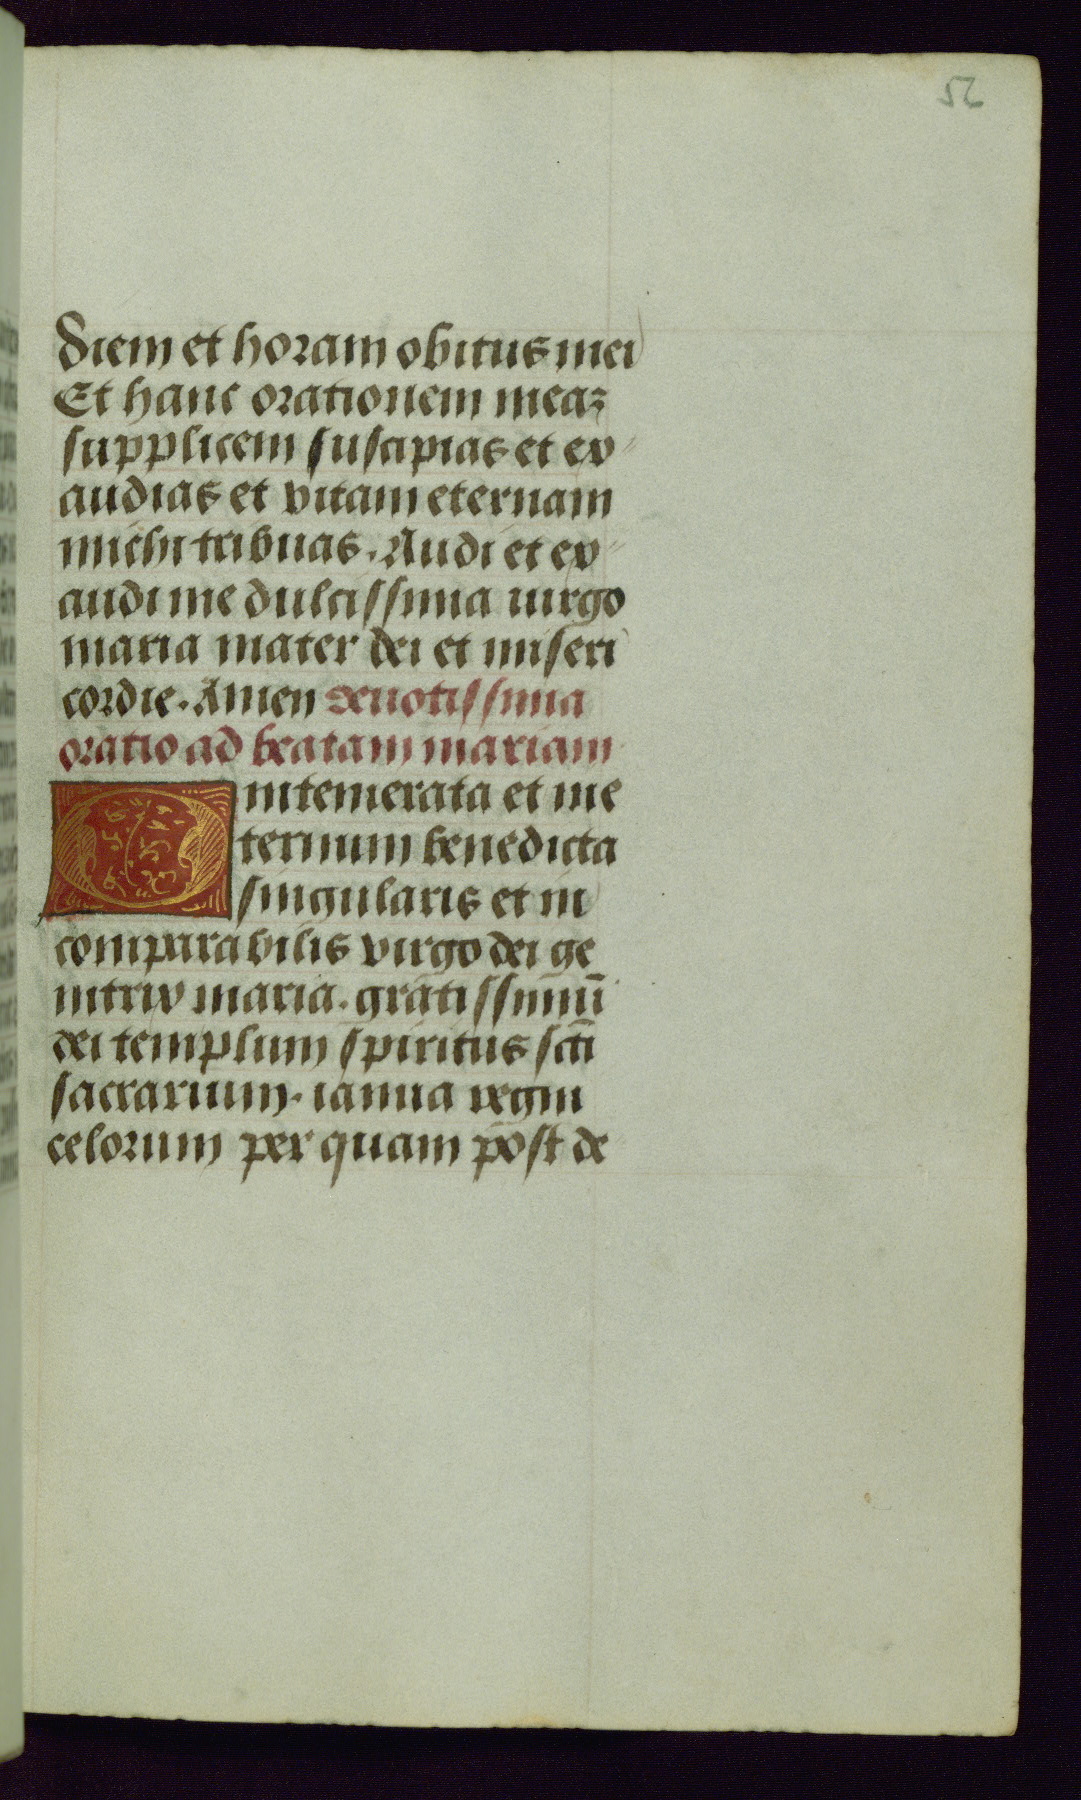 52
diem et horam obitus mei
Et hanc orationem meaz
supplicem suscipias et ex
audias et vitam eternam
michi tribuas. Audi et ex
audi me dulcissima uirgo
maria mater dei et miseri
cordie. Amen deuotissima
oratio ad beatam mariam
O intemerata et ine
ternum benedicta
singularis et in
comparabilis virgo dei ge
nitrix maria. gratissimū
dei templum spiritus scti
sacrarium. ianua regni
celorum per quam post de